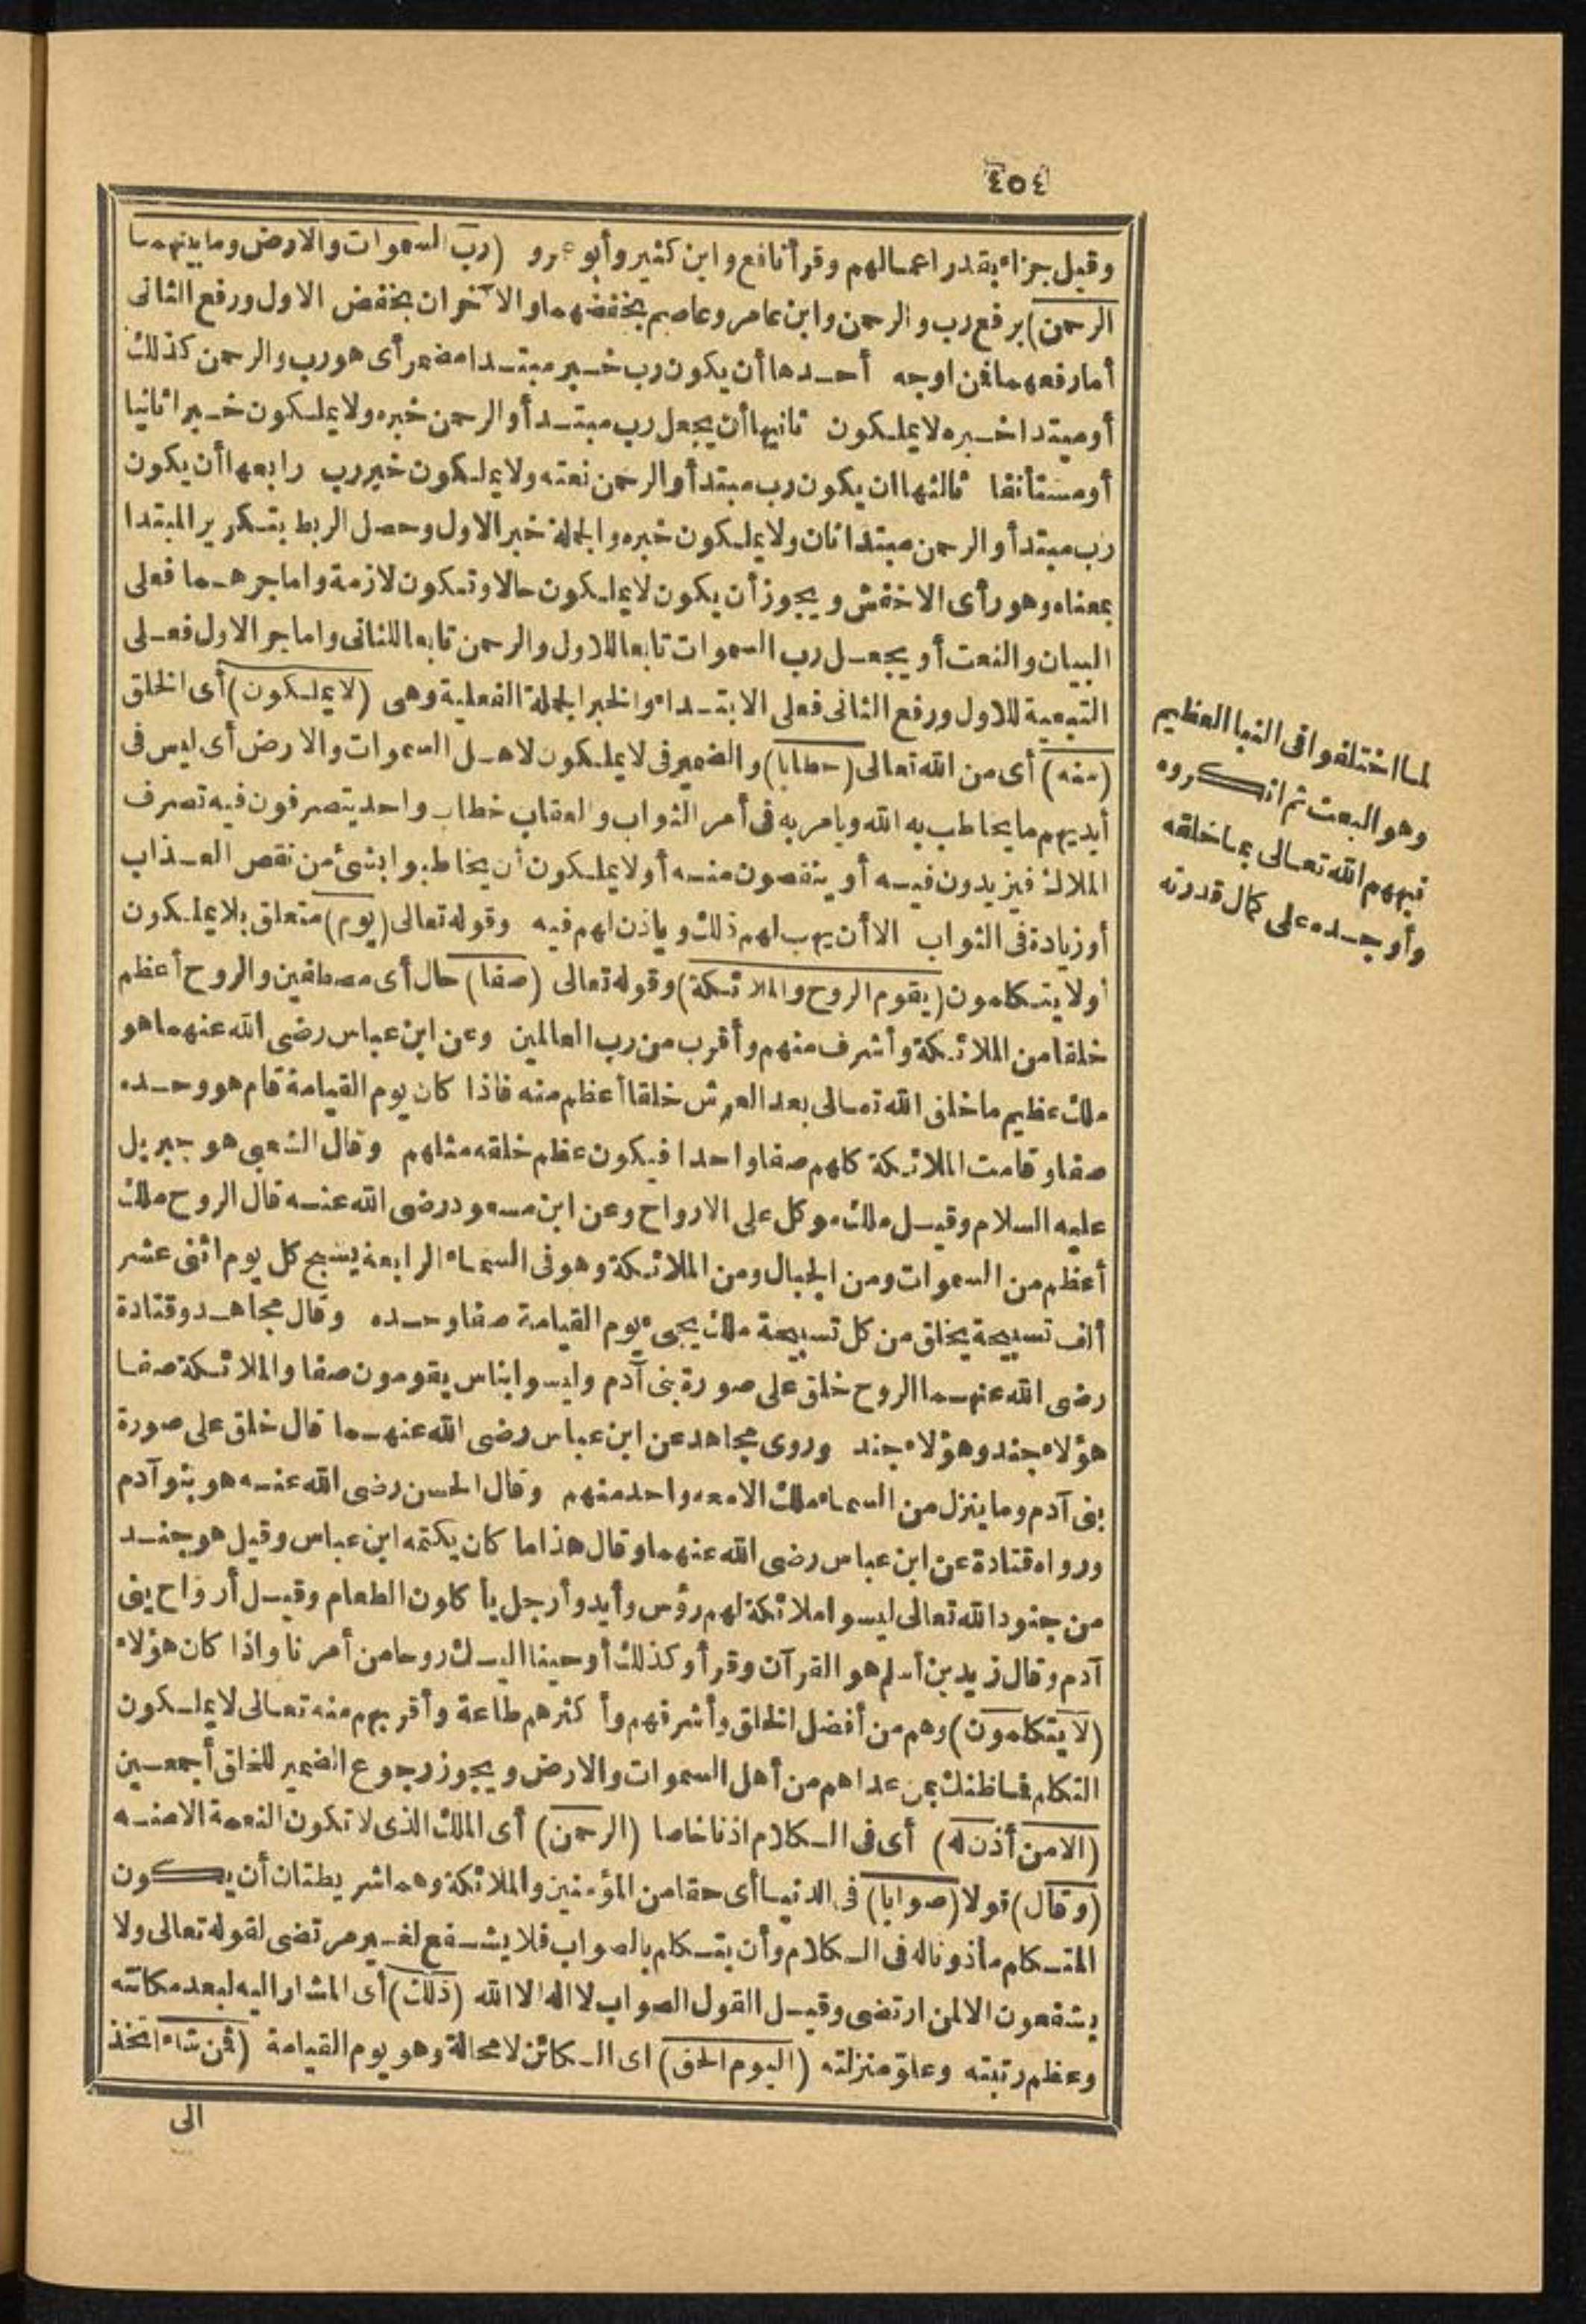 ٤٥٤
وقيل جزاء بقدر اعمالهم وقرأ نافع وابن كثير وأبو عمرو (رب السموات والارض وما بينهما
الرحمن) برفع رب والرحمن وابن عامر وعاصم بخفضهما والآخران بخفض الاول ورفع الثانى
أما رفعهما فمن اوجه أحدها أن يكون رب خبر مبتدا مضمر أى هو رب والرحمن كذلك
أو مبتدا خبره لا يملكون ثانيها أن يجعل رب مبتدأ والرحمن خبره ولا يملكون خبرا ثانيا
أو مستأنفا ثالثها ان يكون رب مبتدأ والرحمن نعته ولا يملكون خبر رب رابعها أن يكون
رب مبتدأ والرحمن مبتدا ثان ولا يملكون خبره والجملة خبر الاول وحصل الربط بتكرير المبتدا
بمعناه وهو رأى الاخفش ويجوز أن يكون لا يملكون حالا وتكون لازمة واما جرهما فعلى
البيان والنعت أو يجعل رب السموات تابعا للاول والرحمن تابعا للثانى واما جر الاول فعلى
التبعية للاول ورفع الثانى فعلى الابتداء والخبر الجملة الفعلية وهى (لا يملكون) أى الخلق
(منه) أى من الله تعالى (خطابا) والضمير فى لا يملكون لاهل السموات والارض أى ليس فى
أيديهم ما يخاطب به الله ويامر به فى أمر الثواب والعقاب خطاب واحد يتصرفون فيه تصرف
الملاك فيزيدون فيه أو ينقصون منه أو لا يملكون أن يخاطبوا بشئ من نقص العذاب
أو زيادة فى الثواب الا أن يهب لهم ذلك وياذن لهم فيه وقوله تعالى (يوم) متعلق بلا يملكون
أو لا يتكلمون (يقوم الروح والملائكة) وقوله تعالى (صفا) حال أى مصطفين والروح أعظم
خلقا من الملائكة وأشرف منهم وأقرب من رب العالمين وعن ابن عباس رضى الله عنهما هو
ملك عظيم ما خلق الله تعالى بعد العرش خلقا أعظم منه فاذا كان يوم القيامة قام هو وحده
صفا وقامت الملائكة كلهم صفا واحدا فيكون عظم خلقه مثلهم وقال الشعبى هو جبريل
عليه السلام وقيل ملك موكل على الارواح وعن ابن مسعود رضى الله عنه قال الروح ملك
أعظم من السموات ومن الجبال ومن الملائكة وهو فى السماء الرابعة يسبح كل يوم اثنى عشر
ألف تسبيحة يخلق من كل تسبيحة ملك يجىء يوم القيامة صفا وحده وقال مجاهد وقتادة
رضى الله عنهما الروح خلق على صورة بنى آدم وليسوا بناس يقومون صفا والملائكة صفا
هؤلاء جند وهؤلاء جند وروى مجاهد عن ابن عباس رضى الله عنهما قال خلق على صورة
بنى آدم وما ينزل من السماء ملك الا معه واحد منهم وقال الحسن رضى الله عنه هو بنو آدم
ورواه قتادة عن ابن عباس رضى الله عنهما وقال هذا ما كان يكتمه ابن عباس وقيل هو جند
من جنود الله تعالى ليسوا ملائكة لهم رؤس وأيد وأرجل يأكلون الطعام وقيل أرواح بنى
آدم وقال زيد بن أسلم هو القرآن وقرأ وكذلك أوحينا اليك روحا من أمرنا واذا كان هؤلاء
(لا يتكلمون) وهم من أفضل الخلق وأشرفهم وأكثرهم طاعة وأقربهم منه تعالى لا يملكون
التكلم فما ظنك بمن عداهم من أهل السموات والارض ويجوز رجوع الضمير للخلق أجمعين
(الا من أذن له) أى فى الكلام اذنا خاصا (الرحمن) أى الملك الذى لا تكون النعمة الا منه
(وقال) قولا (صوابا) فى الدنيا أى حقا من المؤمنين والملائكة وهما شريطتان أن يكون
المتكلم مأذونا له فى الكلام وأن يتكلم بالصواب فلا يشفع لغير مرتضى لقوله تعالى ولا
يشفعون الا لمن ارتضى وقيل القول الصواب لا اله الا الله (ذلك) أى المشار اليه لبعد مكانته
وعظم رتبته وعلو منزلته (اليوم الحق) اى الكائن لا محالة وهو يوم القيامة (فمن شاء اتخذ
الى
لما اختلفوا فى النبا العظيم
وهو البعث ثم انكروه
نبههم الله تعالى بما خلقه
وأوجده على كمال قدرته